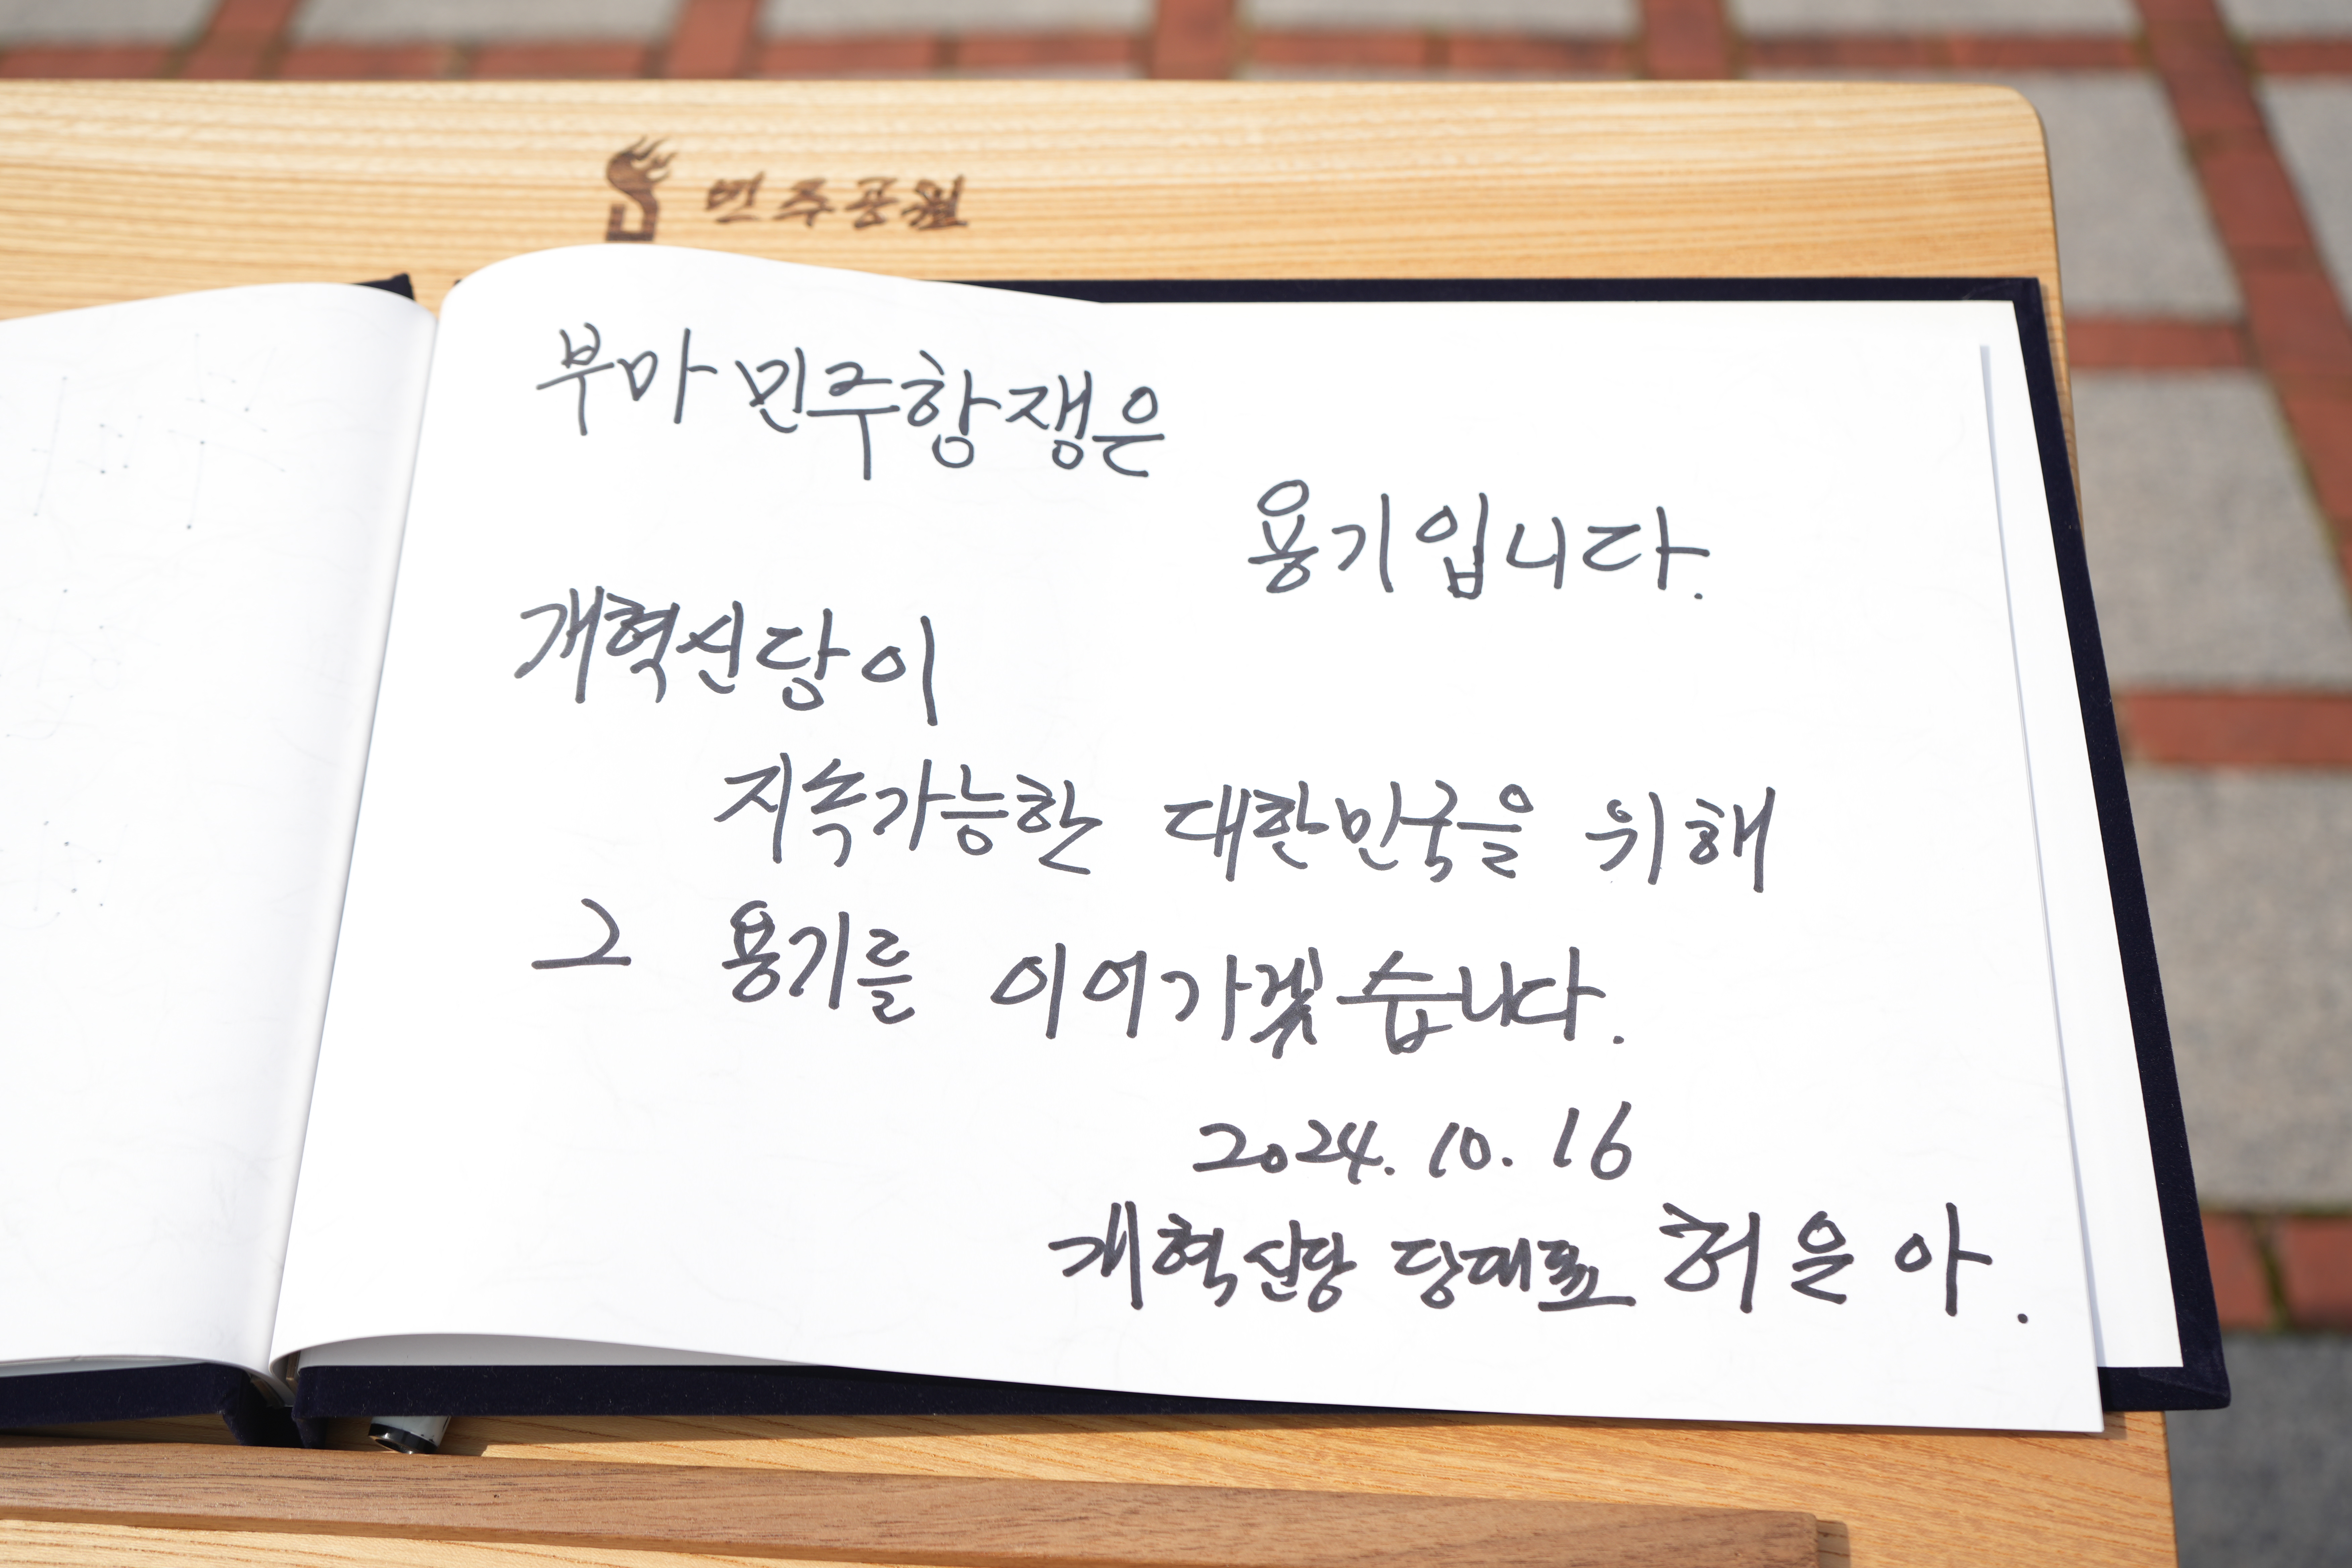 민주공원
부마민주항쟁은
용기입니다.
개혁신당이
지속가능한 대한민국을 위해
그 용기를 이어가겠습니다.
2024. 10. 16
개혁신당 당대표 허은아.